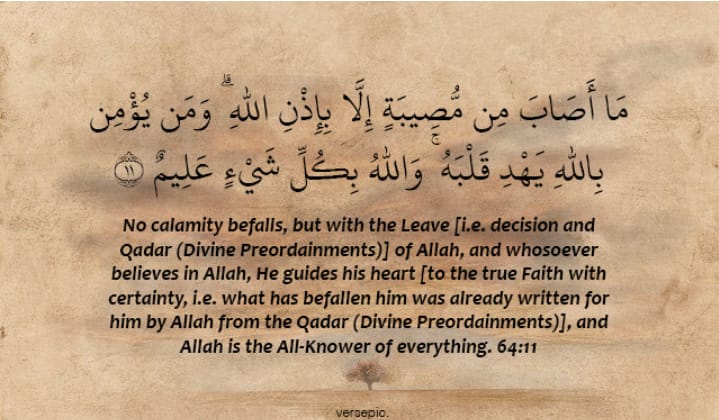 مَا أَصَابَ مِن مُّصِيبَةٍ إِلَّا بِإِذْنِ اللَّهِ ۗ وَمَن يُؤْمِن
بِاللَّهِ يَهْدِ قَلْبَهُ ۚ وَاللَّهُ بِكُلِّ شَيْءٍ عَلِيمٌ ﴿١١﴾
No calamity befalls, but with the Leave [i.e. decision and
Qadar (Divine Preordainments)] of Allah, and whosoever
believes in Allah, He guides his heart [to the true Faith with
certainty, i.e. what has befallen him was already written for
him by Allah from the Qadar (Divine Preordainments)], and
Allah is the All-Knower of everything. 64:11
versepic.